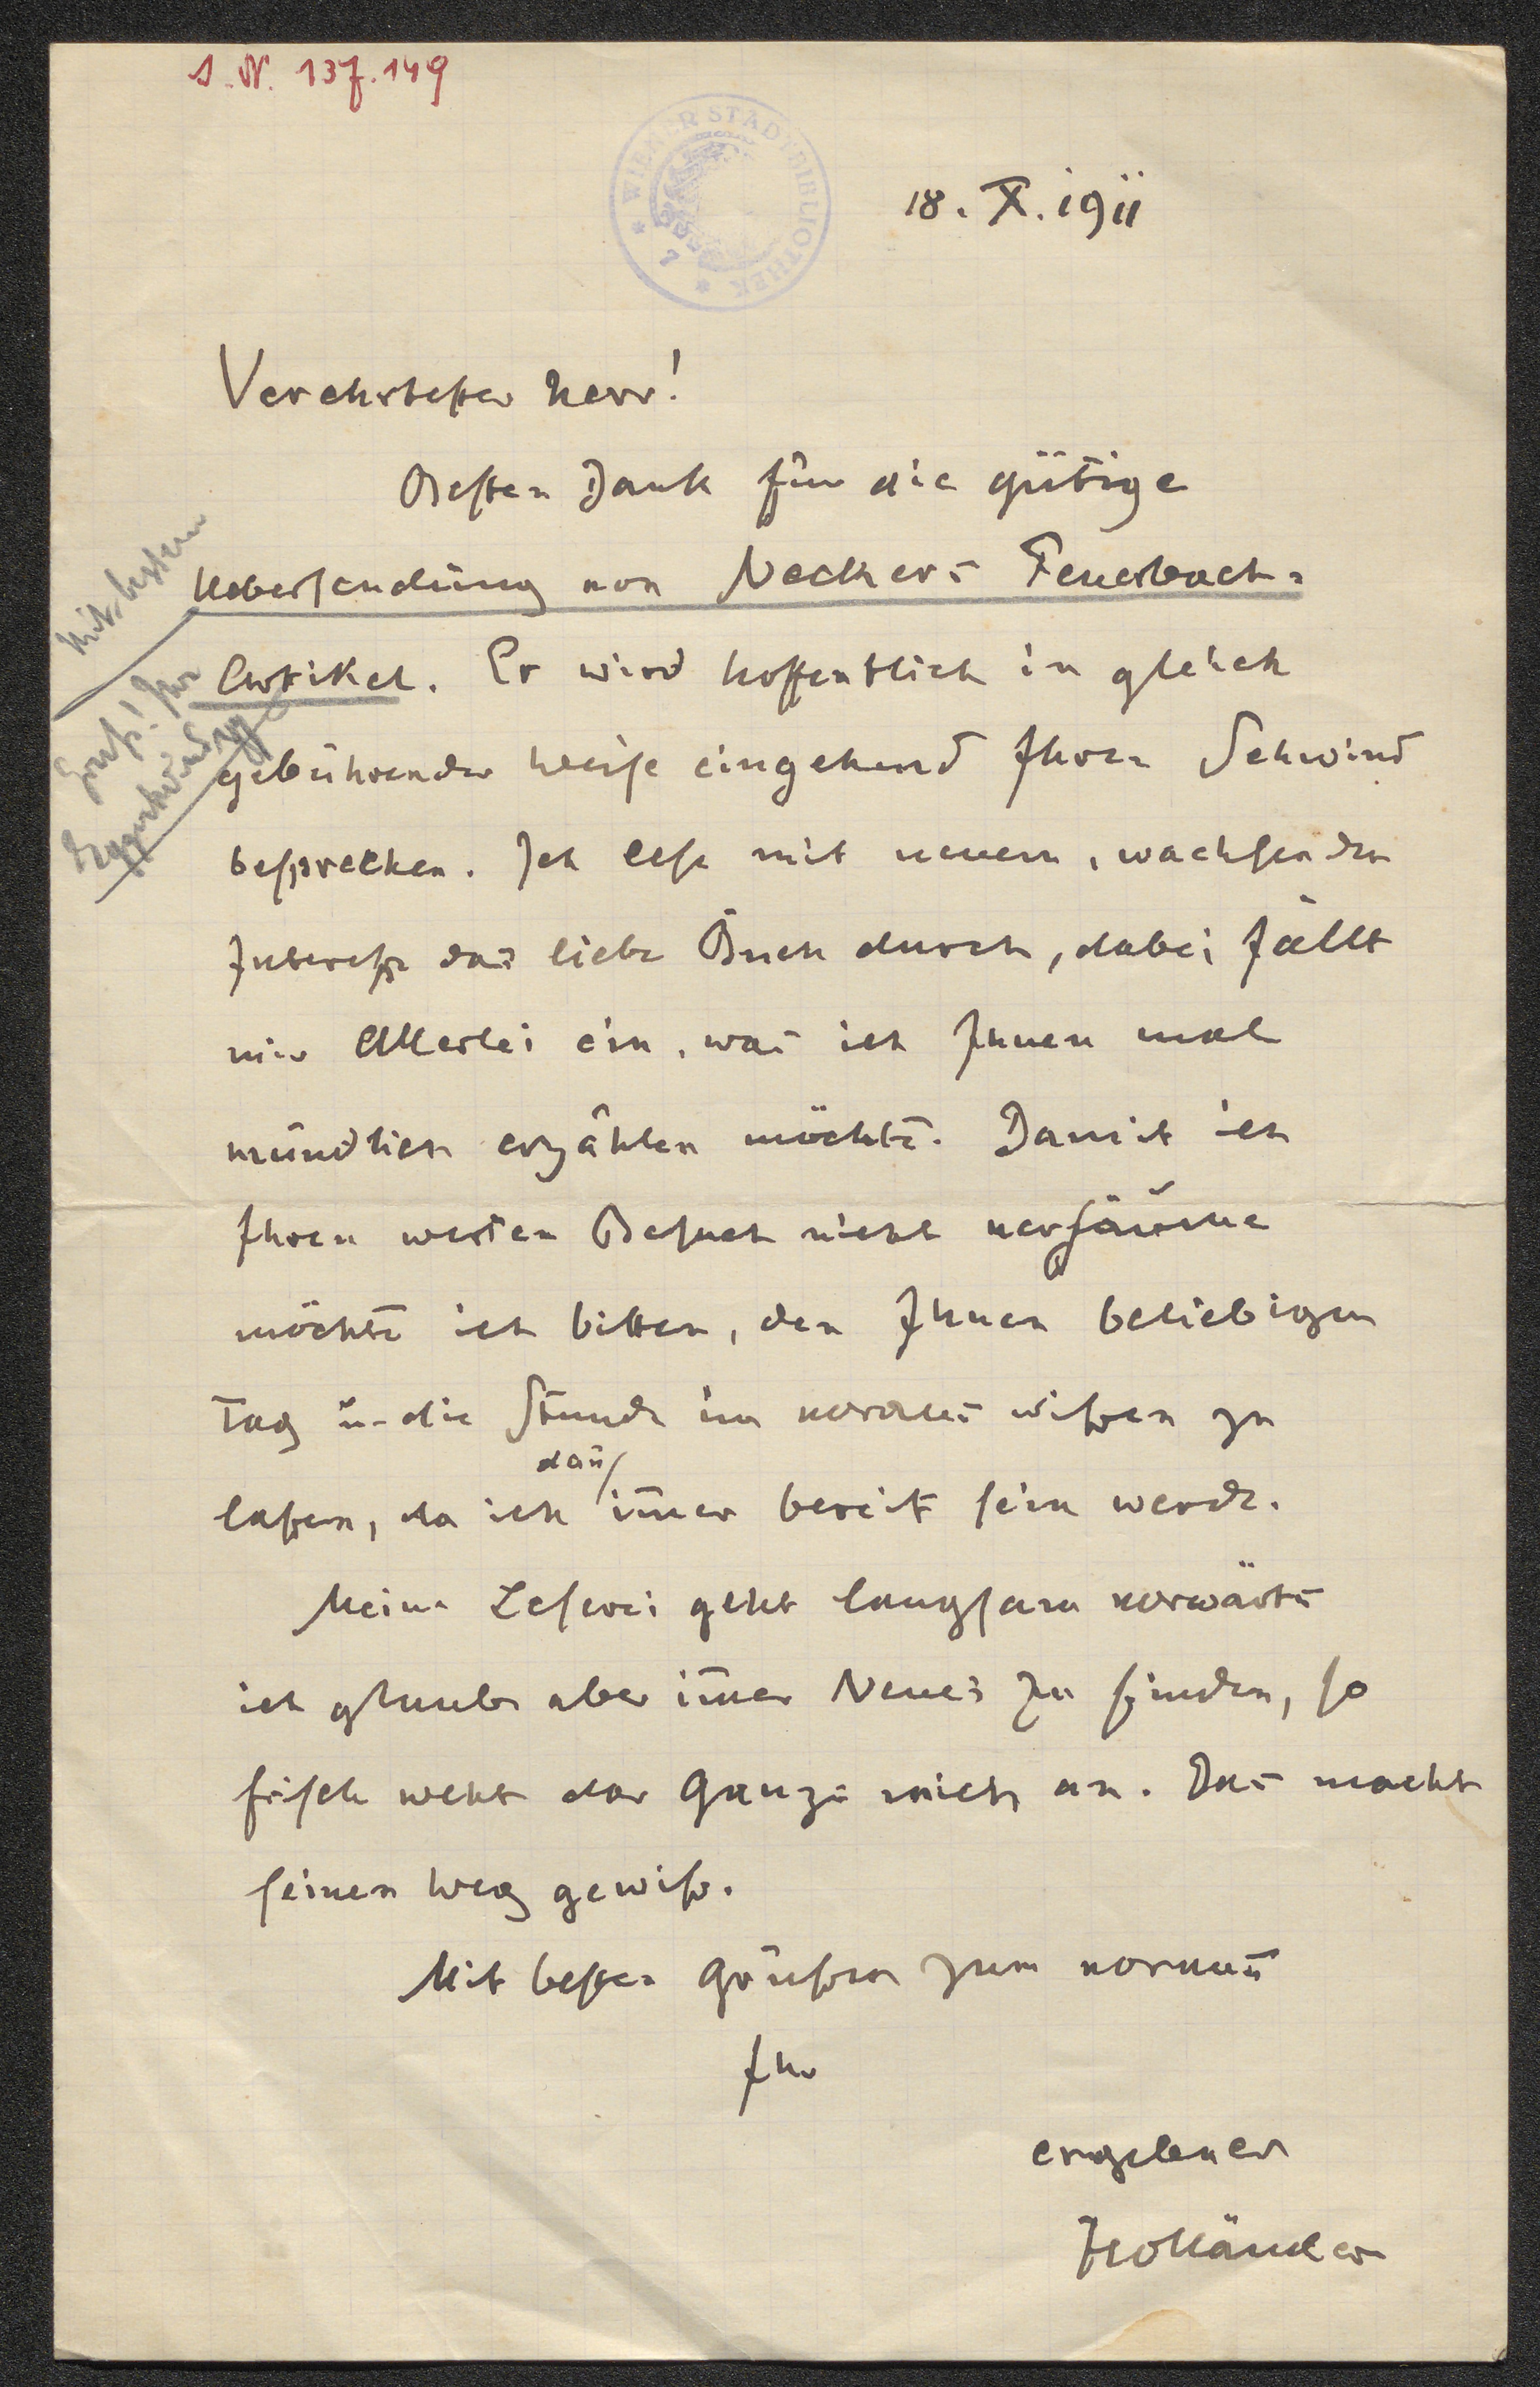 J. N. 137.149
WIENER STADTBIBLIOTHEK
18. X. 1911
Verehrtester Herr!
Besten Dank für die gütige
Uebersendung von Neckers Feuerbach-
Artikel. Er wird hoffentlich in gleich
gebührender Weise eingehend Ihren Schwind
besprechen. Ich lese mit neuem, wachsenden
Interesse das liebe Buch durch, dabei fällt
mir Allerlei ein, was ich Ihnen mal
mündlich erzählen möchte. Damit ich
Ihren werten Besuch nicht versäume
möchte ich bitten, den Ihnen beliebigen
Tag u die Stunde im voraus wißen zu
laßen, da ich dan̄ im̄er bereit sein werde.
Meine Leserei geht langsam vorwärts
ich glaube aber im̄er Neues zu finden, so
frisch weht das Ganze mich an. Das macht
seinen Weg gewiß.
Mit besten Grüßen zum voraus
Ihr
ergebener
Holländer
Mit bestem
Gruß! für